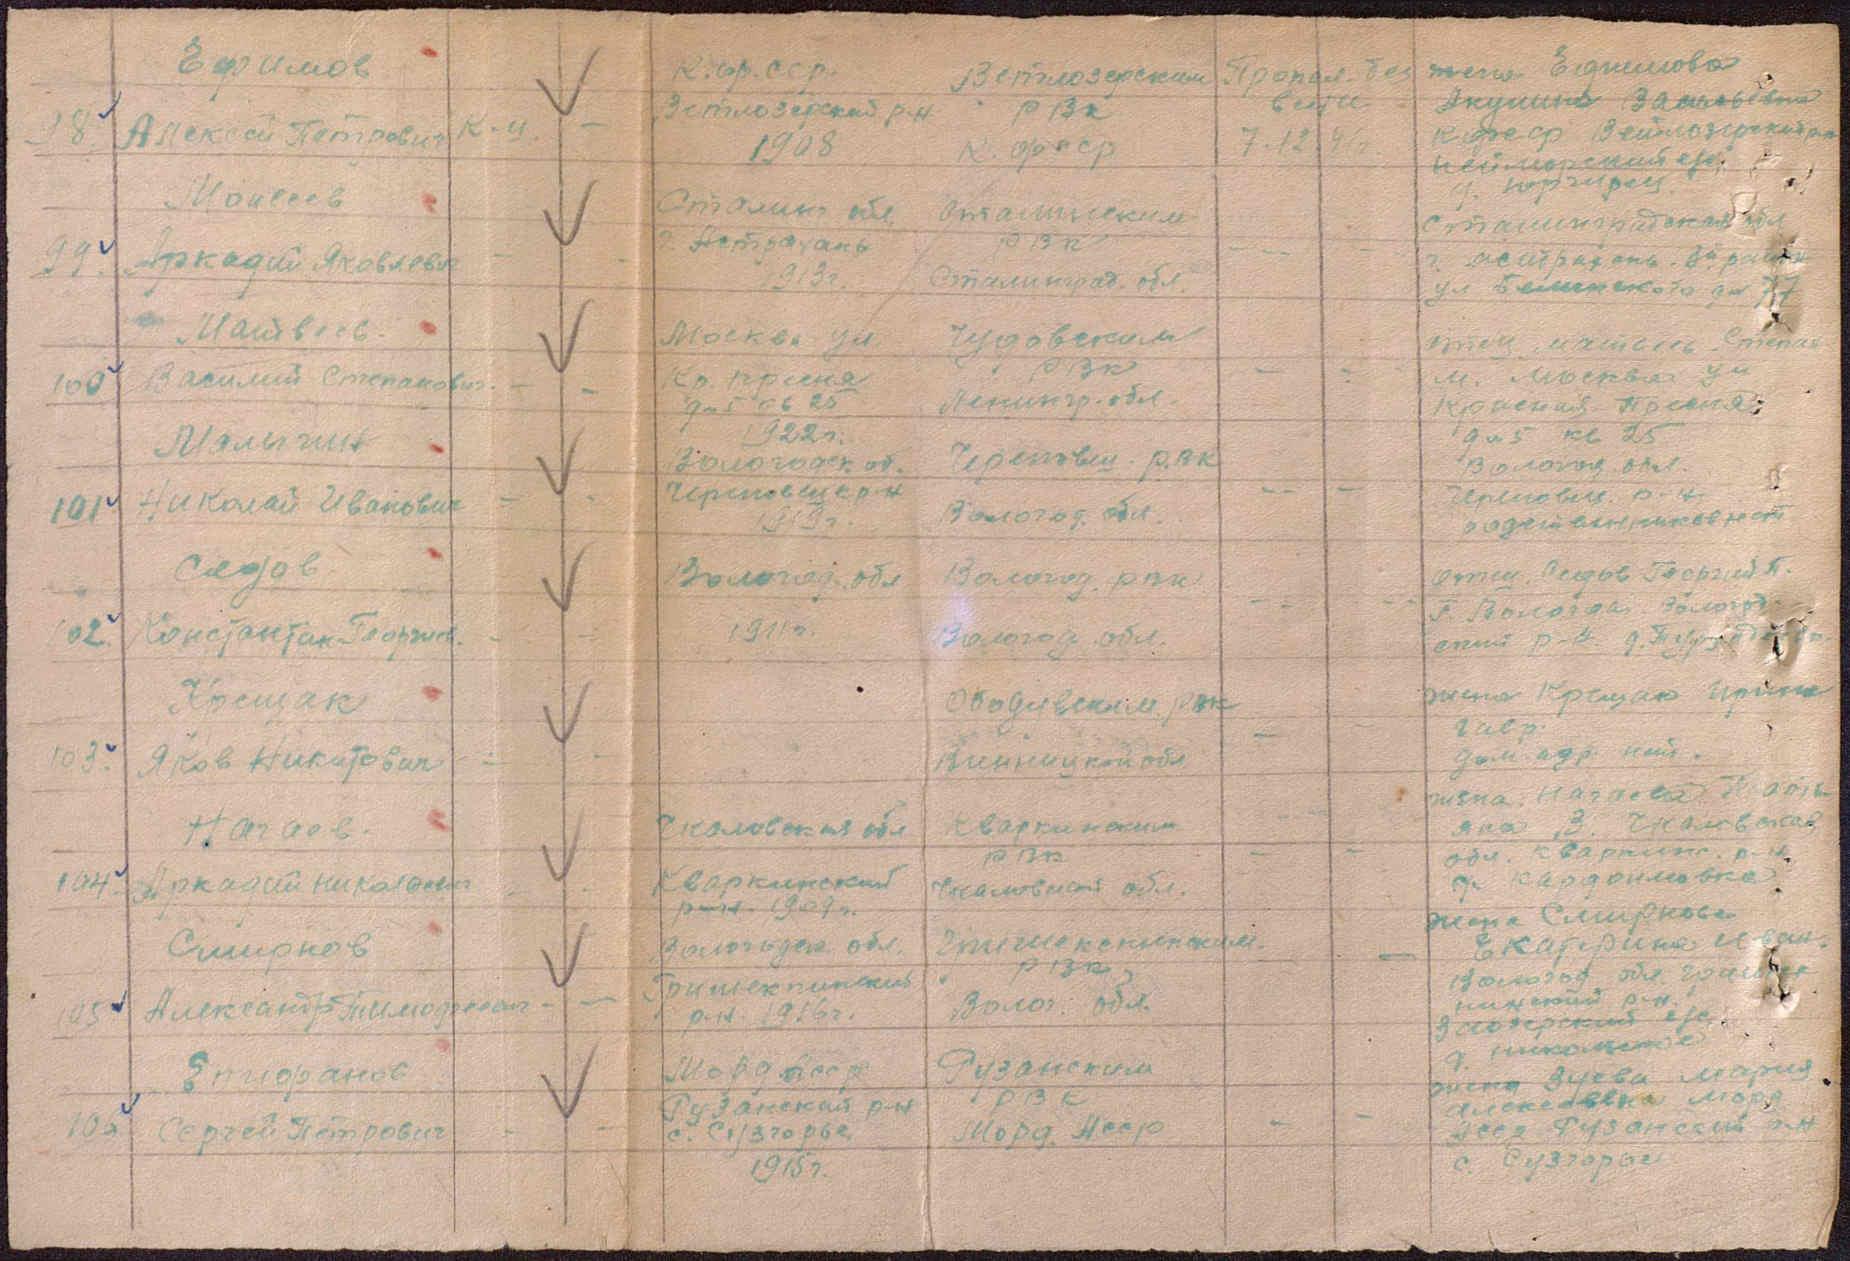 Ефимов
98. Алексей Петрович К-ц. —
К.ф.сср.
Ветлозерский р-н
1908
Ветлозерским
РВК
К.фсср
Пропал без
вести
7.12.41г.
жена Ефимова
Акулина Васильевна
Кфсср Ветлозерский р-н
д.
Моисеев
99. Аркадий Яковлевич - -
Сталинг обл.
г. Астрахань
1913г.
Сталинским
РВК
Сталинград. обл.
Сталинградская обл
г. Астрахань
ул Белинского дм 77
Матвеев.
100 Василий Степанович. - -
Москва ул.
Кр. Пресня
дм 5 кв 25
1922г.
Чудовским
РВК
Ленингр. обл.
отец Степан
м. Москва ул
Красная Пресня
дм 5 кв 25
Малыгин
101 Николай Иванович - -
Вологодск об.
Череповецк р-н
1919г.
Черепвец. РВК
Вологод. обл.
Вологод. обл.
Череповец. р-н
родственников нет
Седов
102. Константин Георгиев. - -
Вологод. обл
1911г.
Вологод. РВК
Вологод. обл.
отец Седов Георгий П.
г. Вологда. Вологод-
ский р-н д.
Крещак
103. Яков Никитович - -
Ободивским РВК
Винницкой обл
жена Крещак Ирина
Гавр.
дом. адр. нет.
Нагаев.
104. Аркадий Николаевич - -
Чкаловская обл
Кваркинский
р-н. 1909г.
Кваркинским
РВК
Чкаловской обл.
жена Нагаева
В. Чкаловская
обл. Кваркинс. р-н
Кардаиловка
Смирнов
105 Александр Тимофеевич - —
Вологодск обл.
р-н. 1916г.
РВК
Волог. обл.
жена Смирнова
Екатерина Иван.
Вологод. обл.
нинский р-н.
Заозерский с/с
д. Никольское
Епифанов
106 Сергей Петрович - -
Морд Асср
Рузанский р-н
с. Сузгорье
1915г.
Рузанским
РВК
Морд. Асср
жена Зуева Мария
Алексеевна Морд
Асср Рузанский р-н
с. Сузгорье